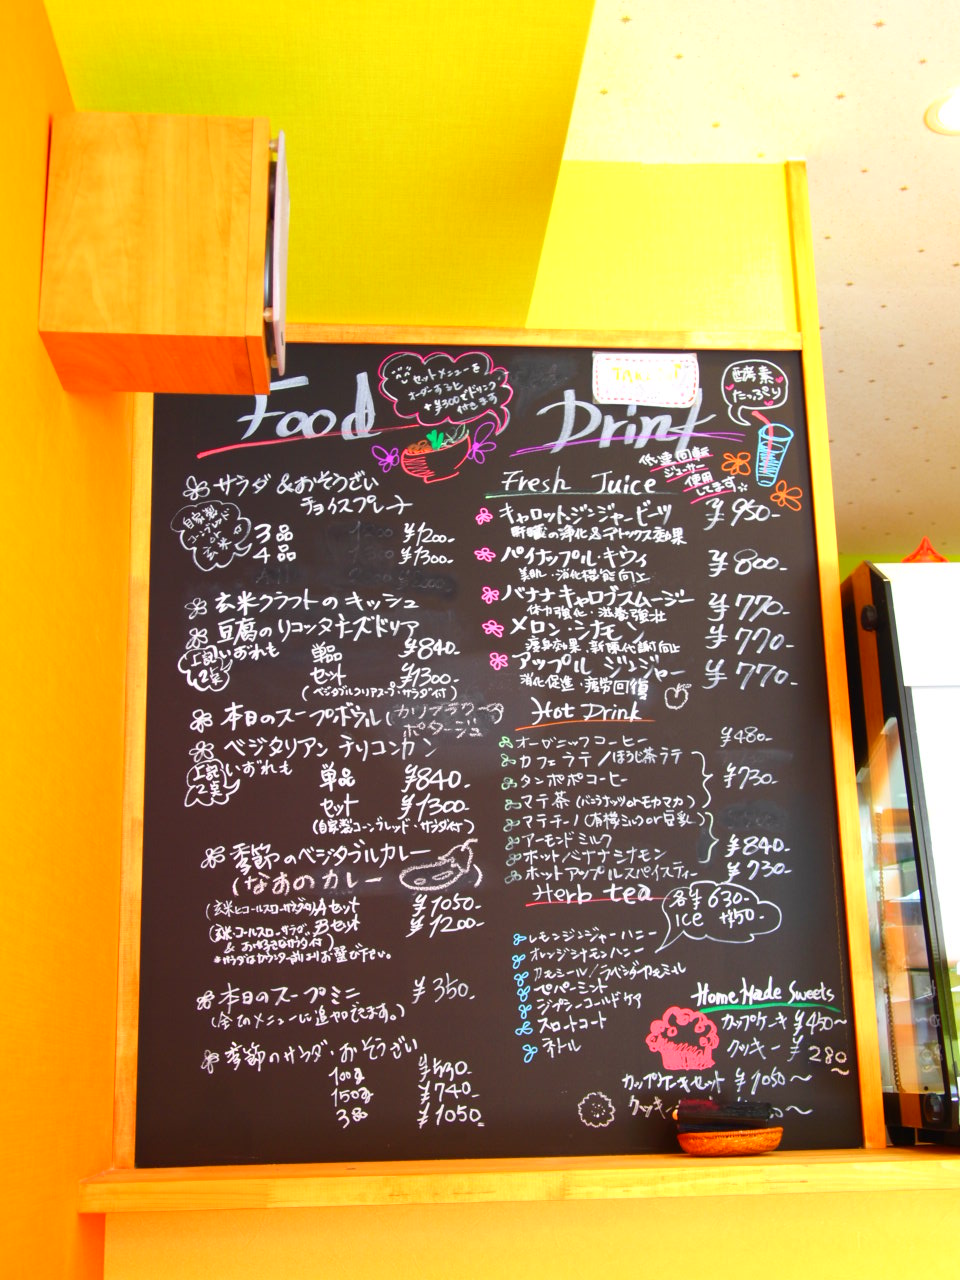 Food
セットメニューを
オーダーすると
+¥300でドリンク
付きます
サラダ&おそうざい
チョイスプレート
自家製
コーンブレッド
or
玄米
3品 ¥1200-
4品 ¥1300-
玄米クラフトのキッシュ
豆腐のリコッタチーズドリア
上記2点
いずれも 単品 ¥840-
セット ¥1300-
(ベジタブルクリアスープ・サラダ付)
本日のスープボウル(カリフラワー
ポタージュ
ベジタリアンチリコンカン
上記2点
いずれも 単品 ¥840-
セット ¥1300-
(自家製コーンブレッド・サラダ付)
季節のベジタブルカレー
(なすのカレー
(玄米とコールスローサラダ付)Aセット ¥1050-
(玄米・コールスローサラダ Bセット ¥1200-
& お好きなサラダ付)
*サラダはカウンター前よりお選び下さい。
本日のスープミニ ¥350-
(全てのメニューに追加できます。)
季節のサラダ・おそうざい
100g ¥530-
150g ¥740-
3品 ¥1050-
Drink
酵素
たっぷり
低速回転
ジューサー
使用
してます☆
Fresh Juice
キャロットジンジャービーツ ¥950-
肝臓の浄化&デトックス効果
パイナップル・キウイ ¥800-
美肌・消化機能向上
バナナキャロブスムージー ¥770-
体力強化・滋養強壮
メロン・シナモン ¥770-
新陳代謝向上
アップルジンジャー ¥770-
消化促進・疲労回復
Hot Drink
オーガニックコーヒー ¥480-
カフェラテ/ほうじ茶ラテ
タンポポコーヒー ¥730-
マテ茶(バニラナッツorモカマカ)
マテチー/(有機ミルクor豆乳)
アーモンドミルク
ホットバナナシナモン ¥840-
ホットアップルスパイスティー ¥730-
Herb tea
各¥630-
ICE +¥50-
レモンジンジャーハニー
オレンジシナモンハニー
カモミール/ラベンダーカモミール
ペパーミント
ジプシーコールドケア
スロートコート
ネトル
Home Made Sweets
カップケーキ ¥450〜
クッキー ¥280〜
カップケーキセット ¥1050〜
クッキー